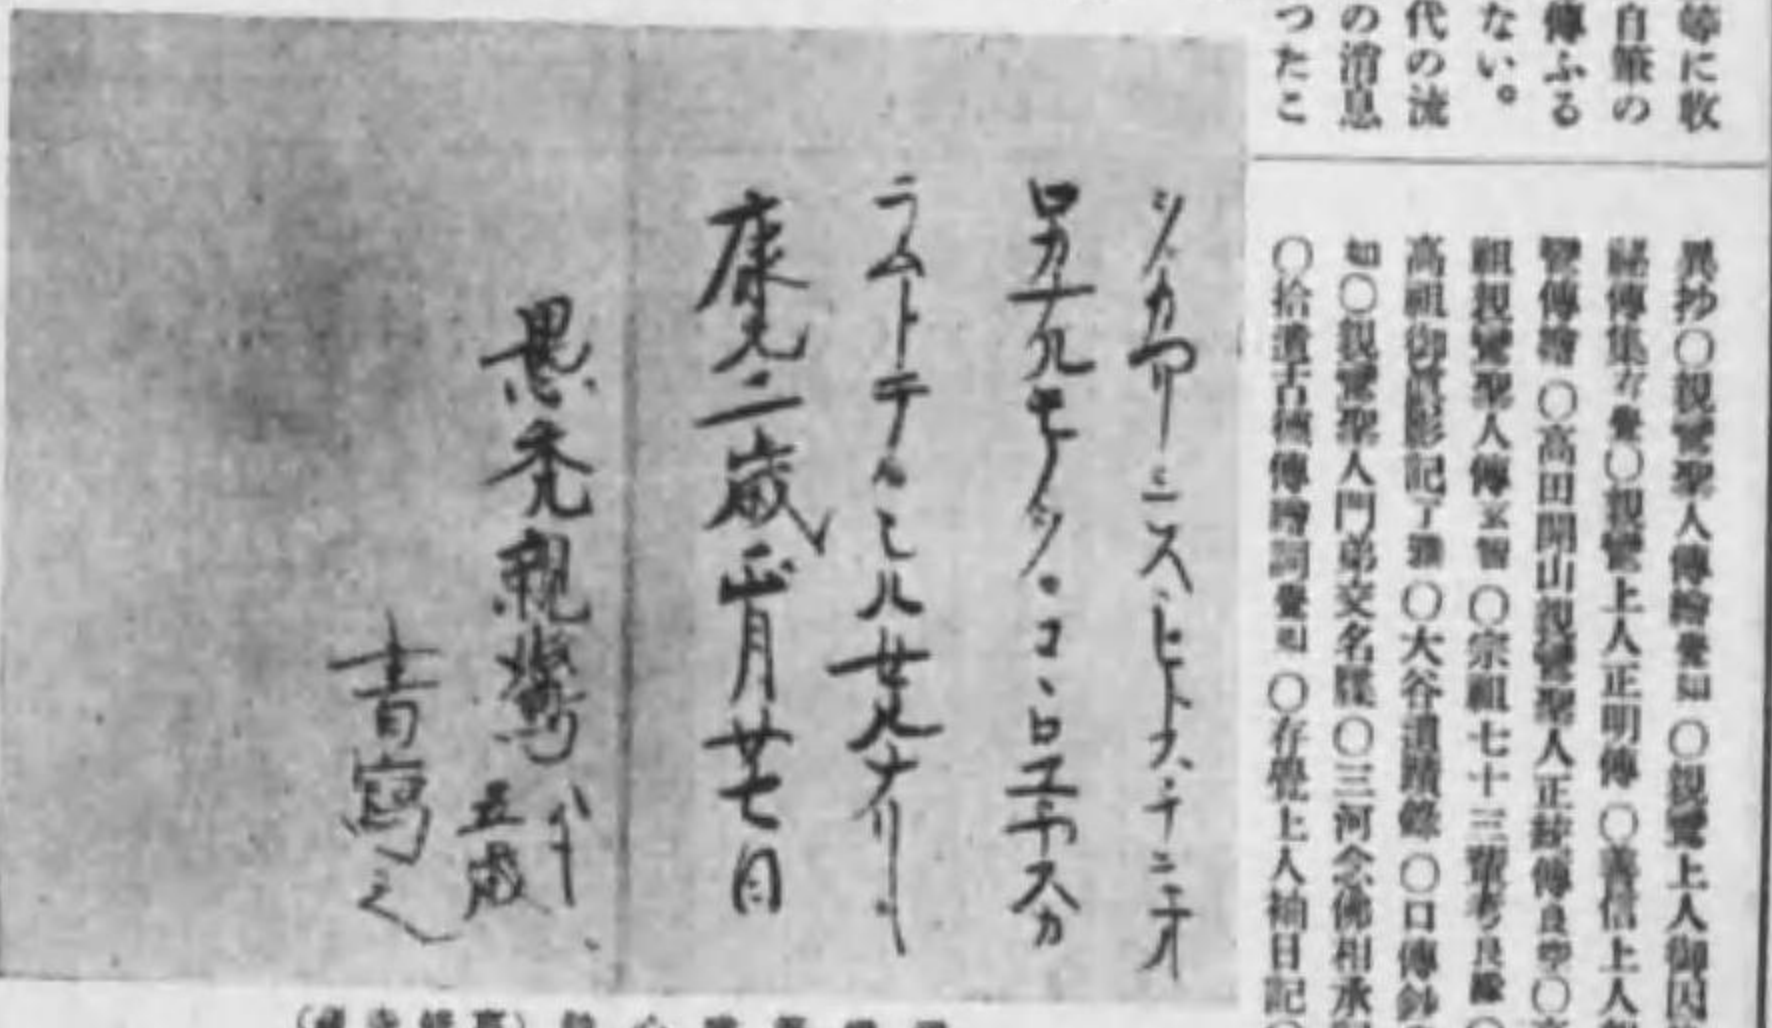 等に收
自筆の
傳ふる
ない。
代の流
の消息
つたこ
異抄〇親鸞聖人傳繪覺如〇親鸞上人御因
祕傳集存覺〇親鸞上人正明傳〇善信上人
鸞傳繪〇高田開山親鸞聖人正統傳良空〇
祖親鸞聖人傳玄智〇宗祖七十三
高祖御眞影記了雅〇大谷遺蹟錄〇口傳鈔
如〇親鸞聖人門弟交名牒〇三河念佛相承
〇拾遺古德傳繪詞覺如〇存覺上人袖日記〇
ヒトスチニオ
ロカナルモノヽコヽロエヤスカ
ラムトテシルセルナリ
康元二歳正月廿七日
愚禿親鸞八十五歳
書寫之